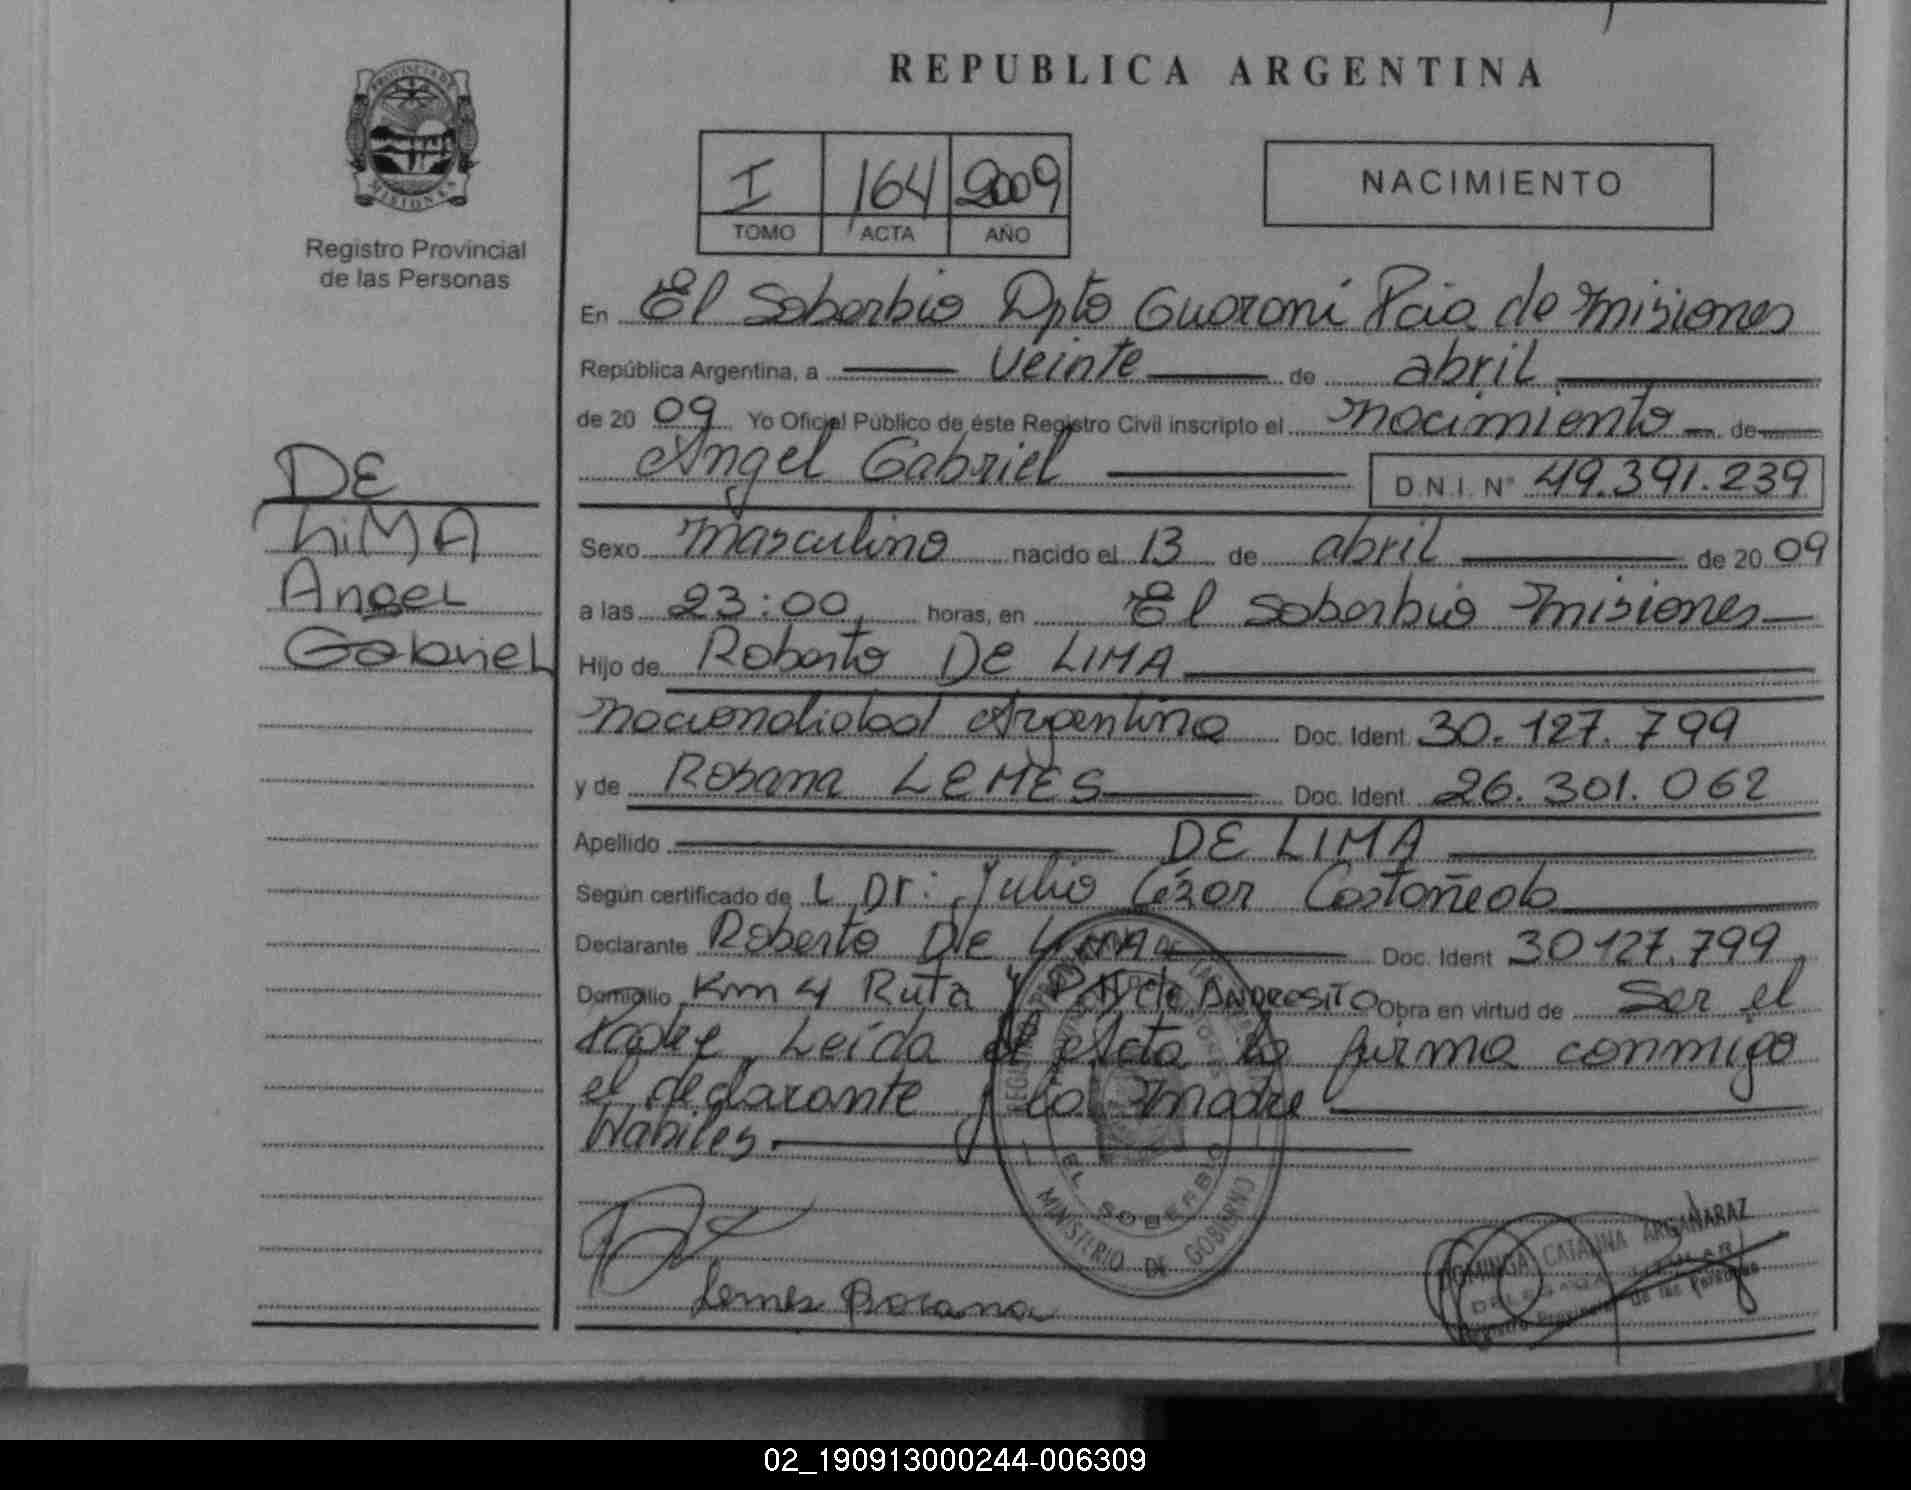 PROVINCIA DE
MISIONES
Registro Provincial
de las Personas
DE
LIMA
Angel
Gabriel
REPUBLICA ARGENTINA
I 164 2009
TOMO ACTA AÑO
NACIMIENTO
En El Soberbio Dpto Guaraní Pcia de Misiones
República Argentina, a Veinte de abril
de 20 09 Yo Oficial Público de éste Registro Civil inscripto el nacimiento de
Angel Gabriel D.N.I. Nº 49.391.239
Sexo masculino nacido el 13 de abril de 20 09
a las 23:00 horas, en El Soberbio Misiones
Hijo de Roberto DE LIMA
nacionalidad Argentina Doc. Ident. 30.127.799
y de Rosana LEMES Doc. Ident. 26.301.062
Apellido DE LIMA
Según certificado de L Dr: Julio Cézar Castañeda
Declarante Roberto De Lima Doc. Ident 30127.799
Domicilio Km 4 Ruta Andresito Obra en virtud de Ser el
Padre Leída el Acta la firma conmigo
el declarante y la madre
Habiles
EL SOBERBIO
MINISTERIO DE GOBIERNO
Lemes Rosana
DOMINGA CATALINA ARGAÑARAZ
Registro Provincial de las Personas
02_190913000244-006309